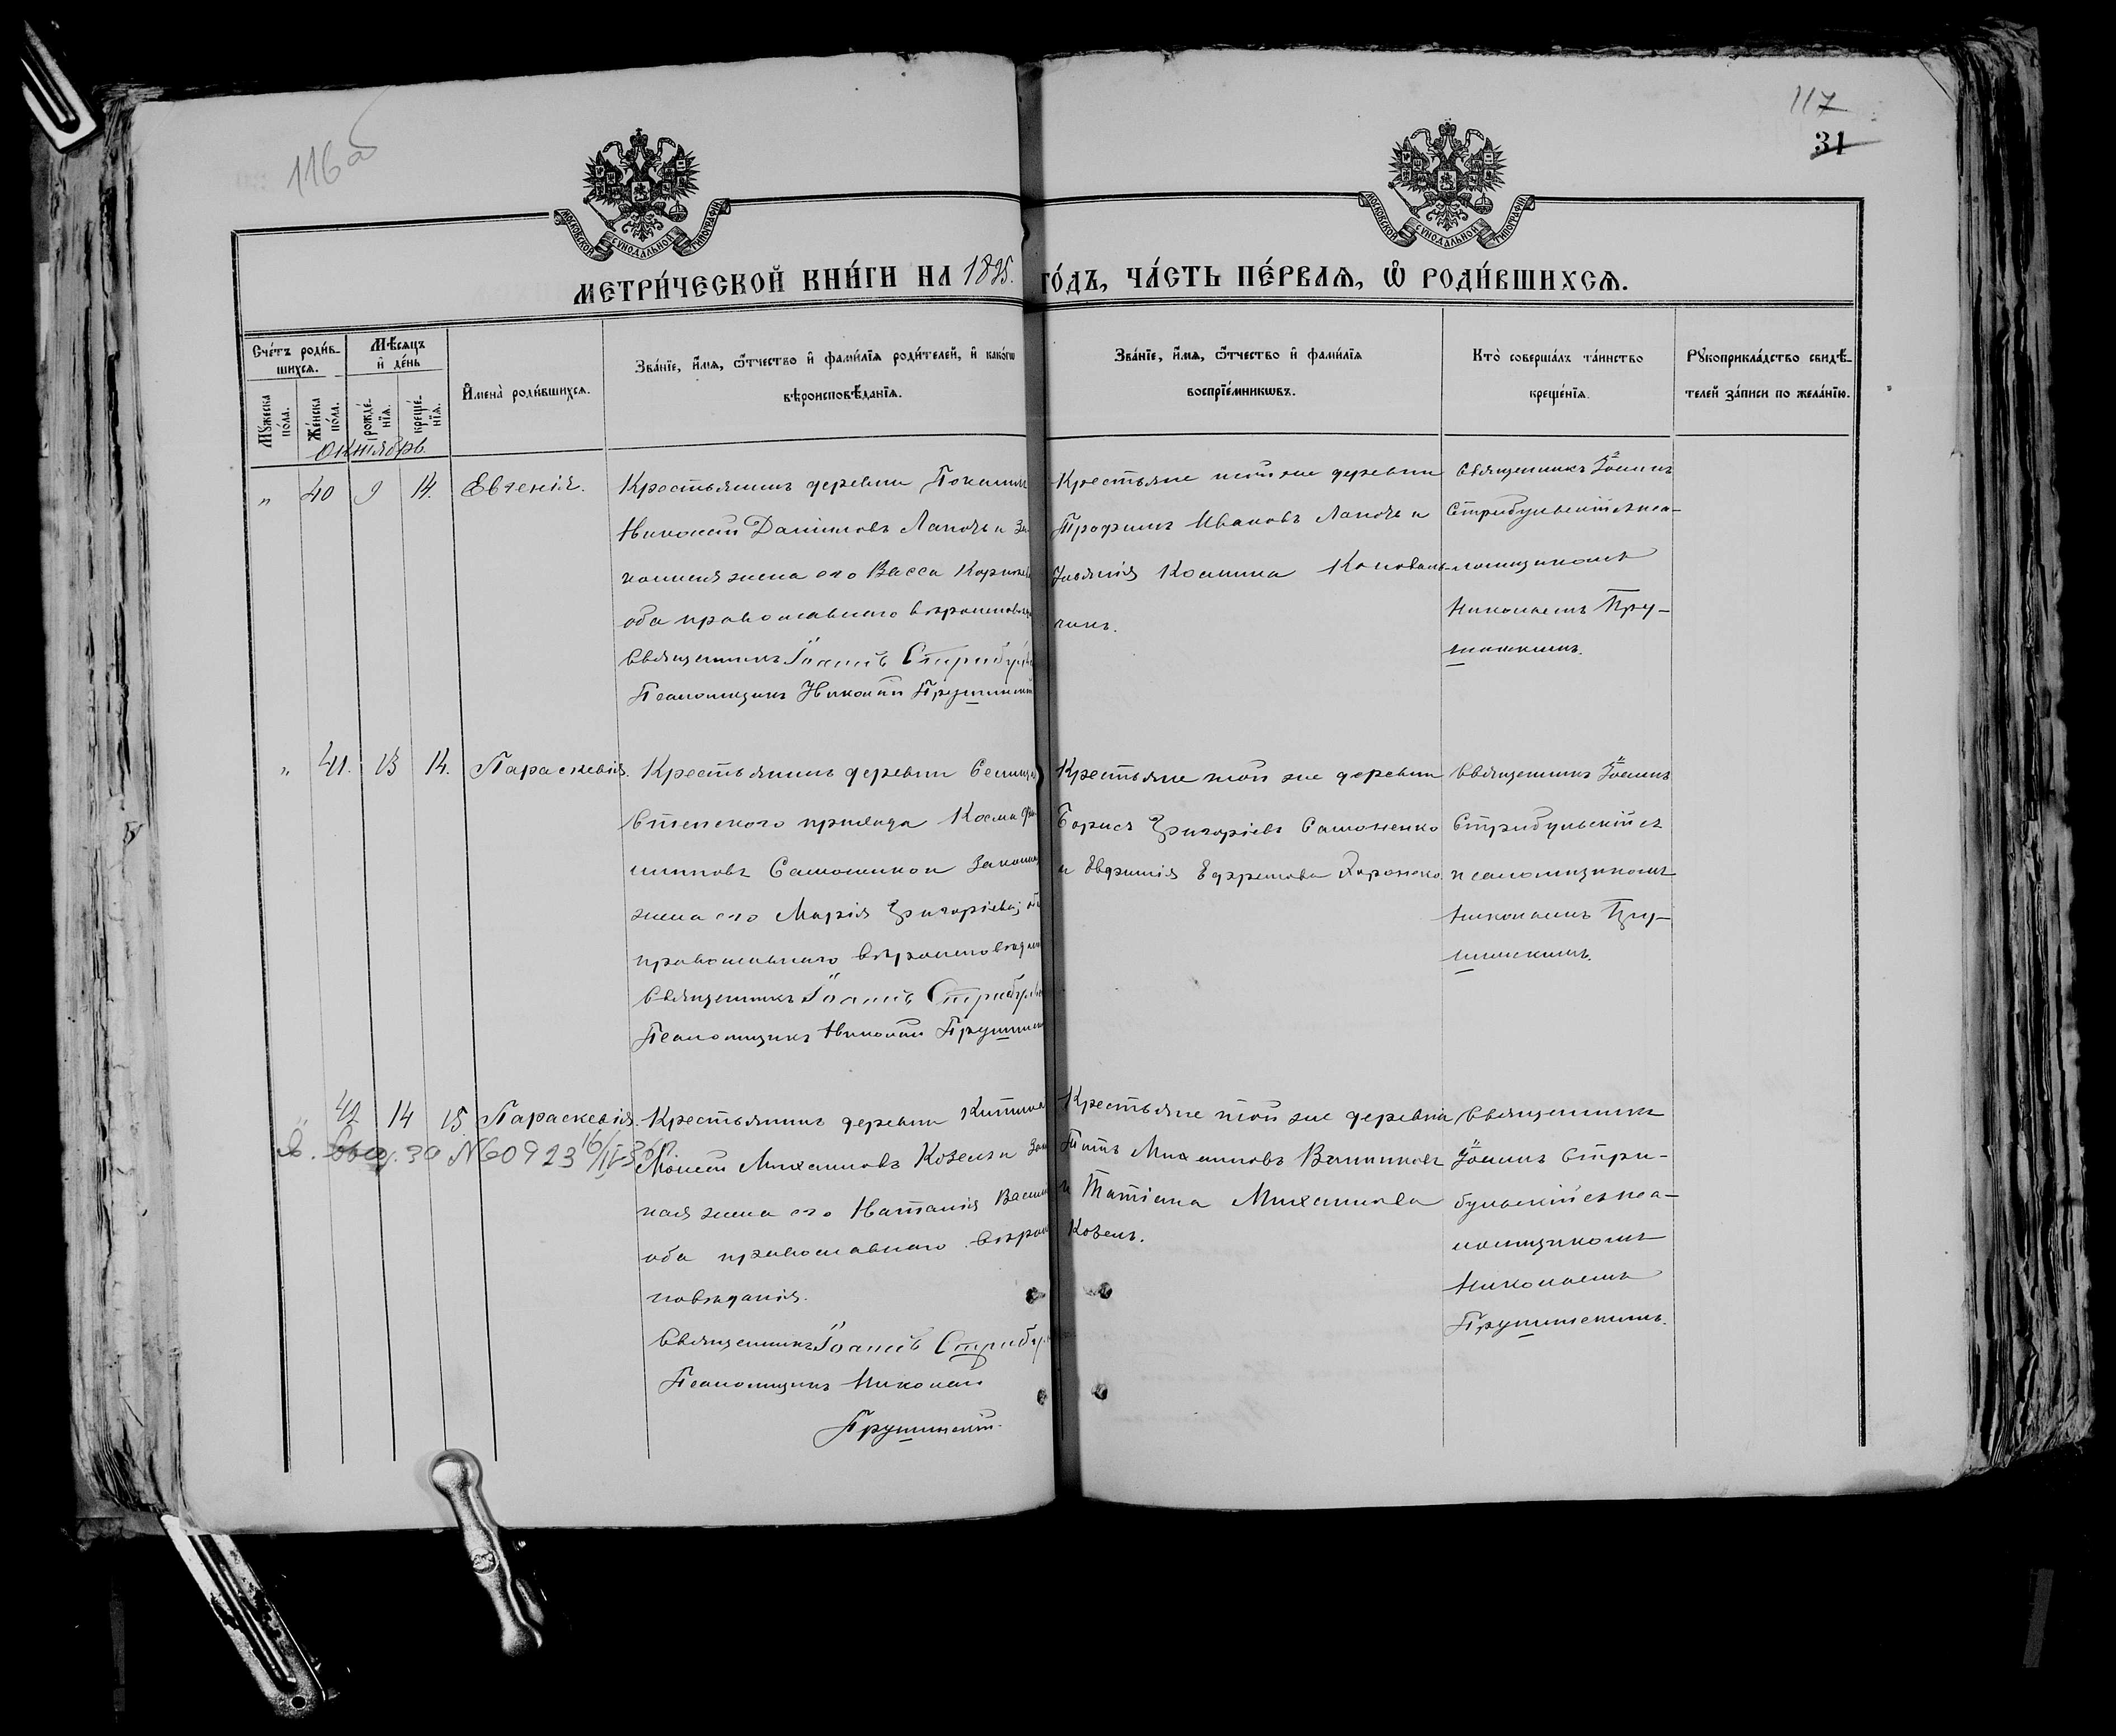 116 об
117
31
МОСКОВСКОЙ СѴНОДАЛЬНОЙ ТИПОГРАФІИ
МОСКОВСКОЙ СѴНОДАЛЬНОЙ ТИПОГРАФІИ
МЕТРИ́ЧЕСКОЙ КНИ́ГИ НА 1895. ГО́ДЪ, ЧА́СТЬ ПЕ́РВАЯ, Ѡ РОДИ́ВШИХСЯ.
Сче́тъ роди́в-
шихся.
Мѣ́сяцъ
и де́нь
Мꙋ́жеска
по́ла.
Же́нска
по́ла.
рожде́-
нія.
креще́-
нія.
Имена̀ роди́вшихся.
Зва́ніе, и́мя, ѻ́тчество и фами́лія роди́телей, и како́гѡ
вѣроисповѣ́данія.
Зва́ніе, и́мя, ѻ́тчество и фами́лія
воспріе́мникѡвъ.
Кто̀ соверша́лъ та́инство
креще́нія.
Рꙋкоприкла́дство свидѣ́-
телей за́писи по жела́нію.
Октябрь
„ 40 9 14. Евгенія.
Крестьянинъ деревни
Николай Даніиловъ Лапочъ и За
конная жена его Васса
оба православнаго вѣроисповѣд
Священникъ Іоаннъ Стрибул
Псаломщикъ Николай Прушинскій
Крестьяне той же деревни
Трофимъ Ивановъ Лапочъ и
Косьмина
чикъ.
Священникъ Іоаннъ
Стрибульскій съ пса-
ломщикомъ
Николаемъ Пру-
шинскимъ.
„ 41. 13 14. Параскевія.
Крестьянинъ деревни
прихода Косма
Законная
жена его Марія Григоріева; об
православнаго вѣроисповѣдан
Священникъ Іоаннъ Стрибул
Псаломщикъ Николай Прушинс
Крестьяне той же деревни
Борисъ Григоріевъ Самоненко
и Евфимія Ефремова
Священникъ Іоаннъ
Стрибульскій съ
псаломщикомъ
Николаемъ Пру-
шинскимъ.
„ 42 14 15 Параскевія.
№ 60923
Крестьянинъ деревни
Моисей Михаиловъ Козелъ и Зак
ная жена его Наталія Васил
оба православнаго вѣроис
повѣданія.
Священникъ Іоаннъ Стрибул
Псаломщикъ Николай
Прушинскій.
Крестьяне той же деревни
Титъ Михаиловъ
и Татіана Михаилова
Козелъ.
Священникъ
Іоаннъ Стри-
бульскій съ пса-
ломщикомъ
Николаемъ
Прушинскимъ.